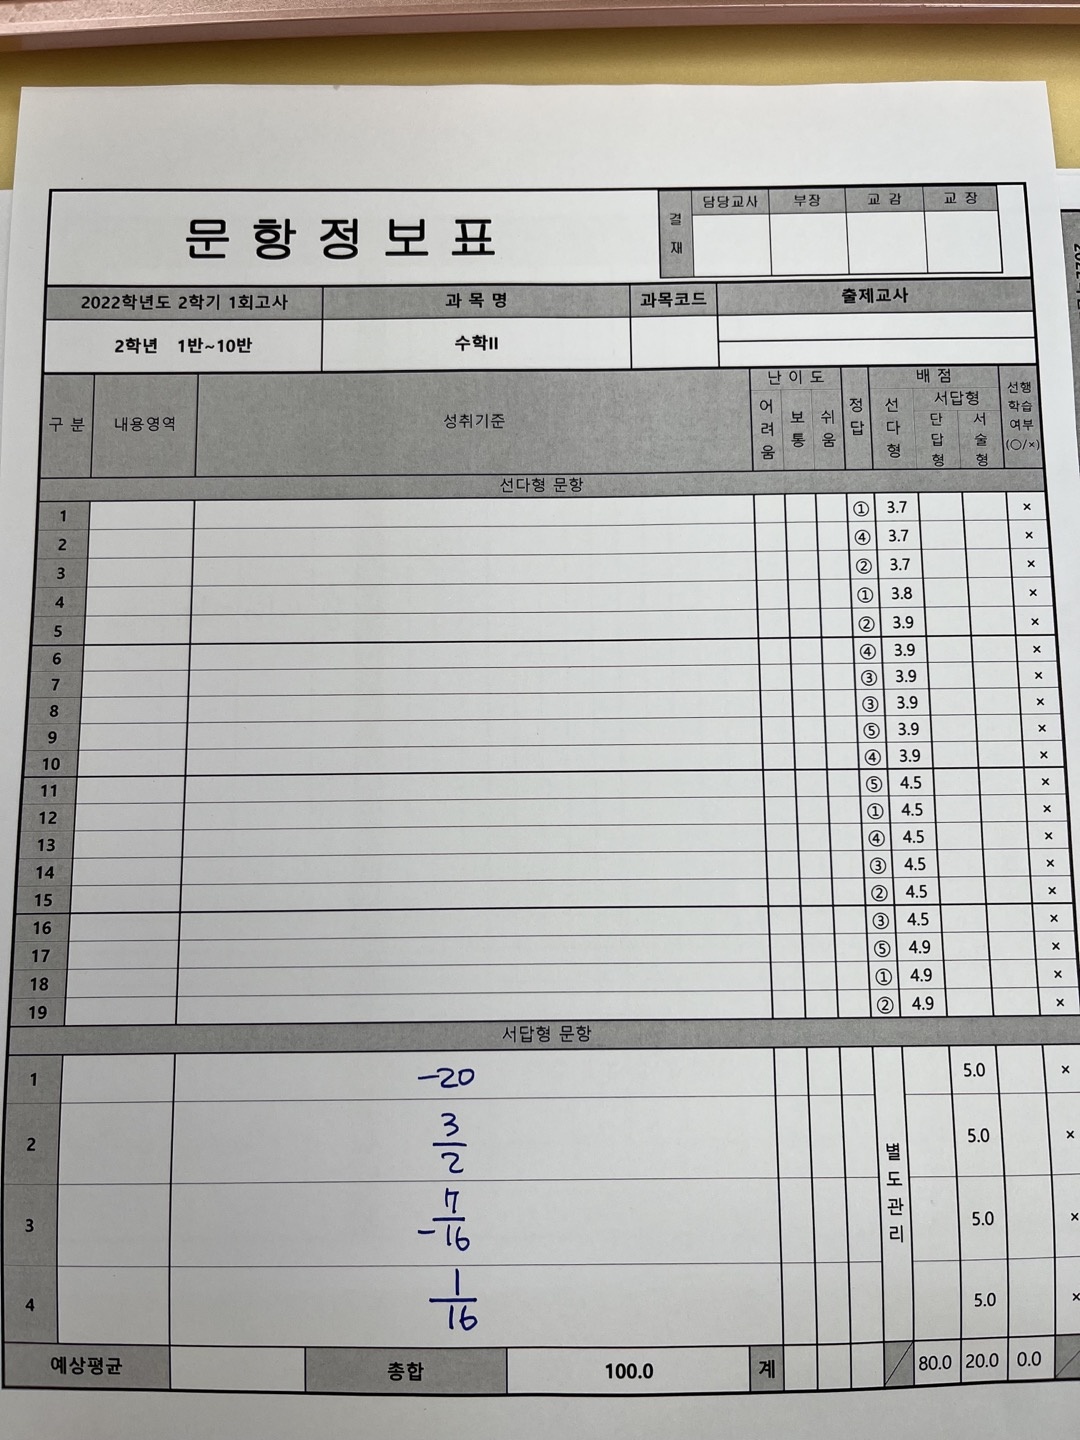 문 항 정 보 표
결재 담당교사 부장 교 감 교 장
2022학년도 2학기 1회고사 과 목 명 과목코드 출제교사
2학년 1반~10반 수학II
구 분 내용영역 성취기준 난 이 도 어려움 보통 쉬움 정답 배 점 선다형 서답형 단답형 서술형 선행학습여부(○/×)
선다형 문항
1 ① 3.7 ×
2 ④ 3.7 ×
3 ② 3.7 ×
4 ① 3.8 ×
5 ② 3.9 ×
6 ④ 3.9 ×
7 ③ 3.9 ×
8 ③ 3.9 ×
9 ⑤ 3.9 ×
10 ④ 3.9 ×
11 ⑤ 4.5 ×
12 ① 4.5 ×
13 ④ 4.5 ×
14 ③ 4.5 ×
15 ② 4.5 ×
16 ③ 4.5 ×
17 ⑤ 4.9 ×
18 ① 4.9 ×
19 ② 4.9 ×
서답형 문항
1 -20 별도관리 5.0 ×
2 3/2 5.0 ×
3 -7/16 5.0 ×
4 1/16 5.0 ×
예상평균 총합 100.0 계 80.0 20.0 0.0